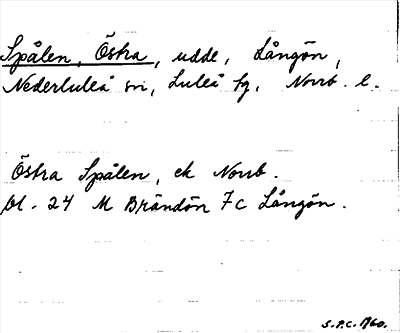 Spålen, Östra, udde, Långön,
Nederluleå sn, Luleå tg, Norrb. l.
Östra Spålen, ek Norrb.
bl. 24 M Brändön 7c Långön.
S.P.C. 1960.